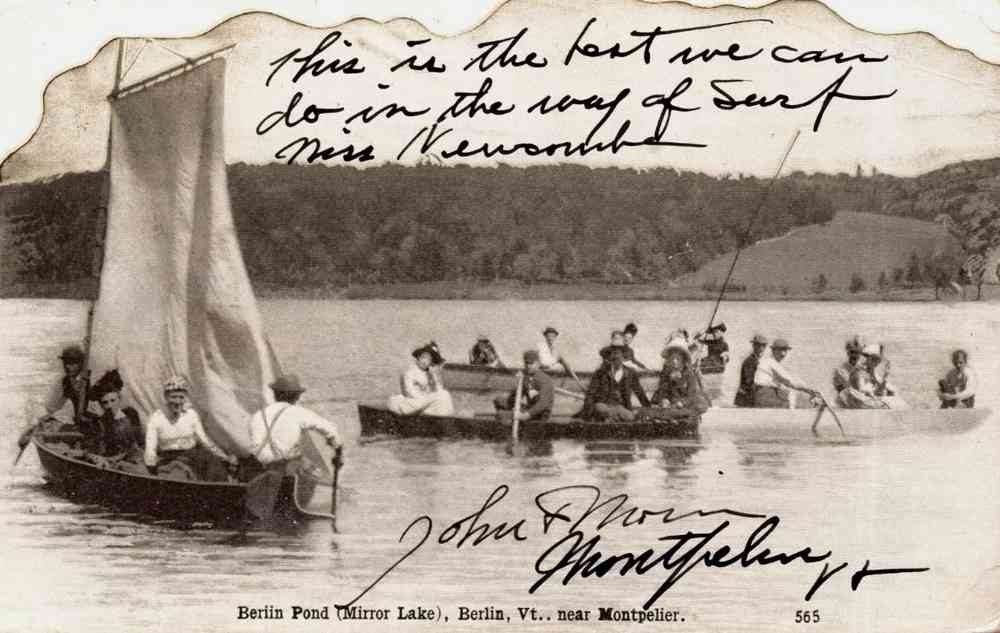 This is the best we can
do in the way of Surf
Miss Newcombe
John & Mom
Montpelier Vt
Beriin Pond (Mirror Lake), Berlin, Vt.. near Montpelier.
565